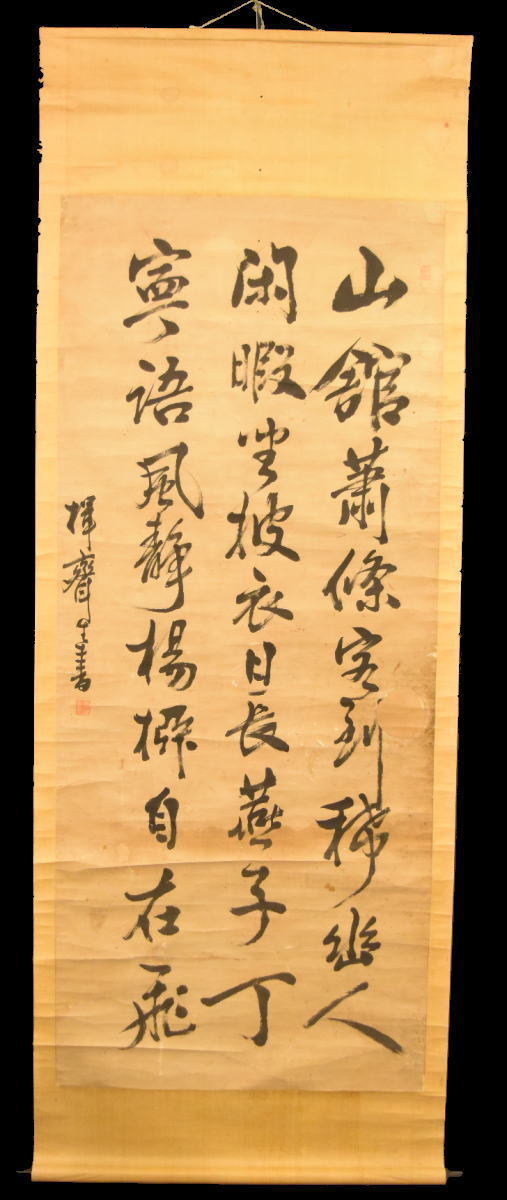 山館蕭條客到稀幽人
閑暇坐披衣日長燕子丁
寧語風靜楊梛自在飛
揮齋生書